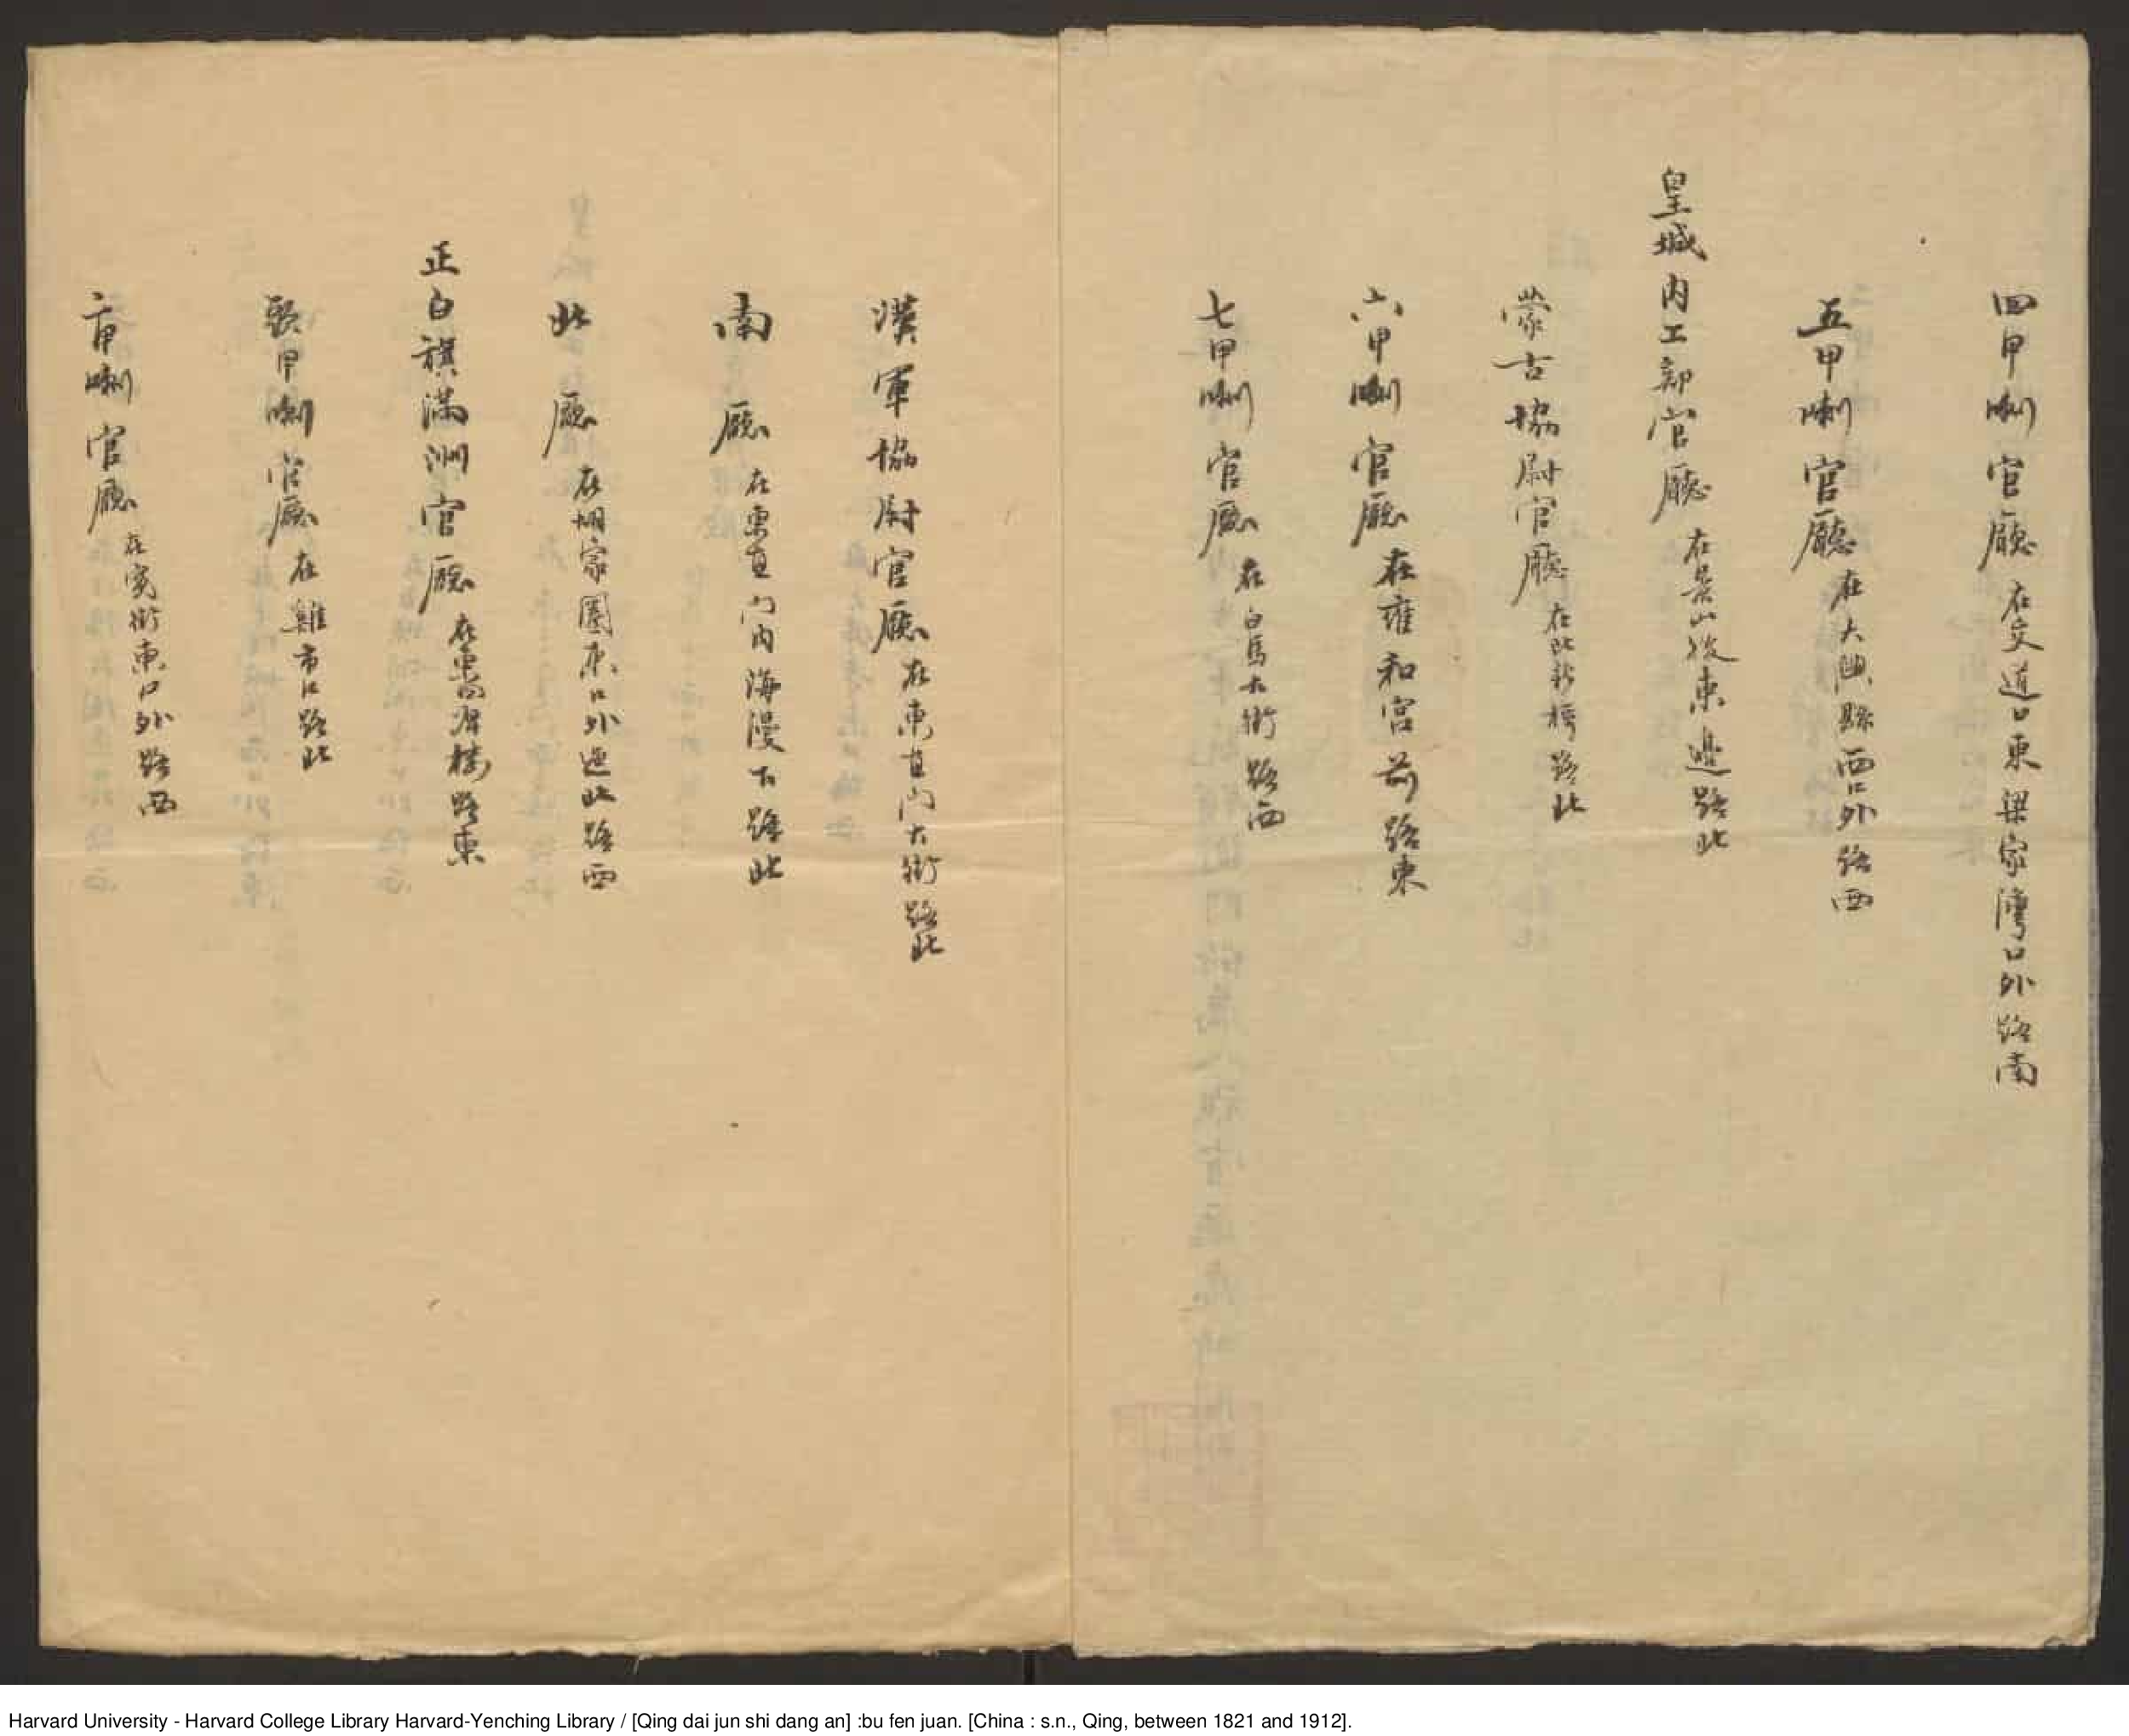 四甲喇官廳在交道口東梁家灣口外路南
五甲喇官廳在大興縣西口外路西
皇城内工部官廳在景山後東邊路北
蒙古協尉官廳在北新橋路北
六甲喇官廳在雍和宮前路東
七甲喇官廳在白馬大街路西
漢軍協尉官廳在東直門大街路北
南廳在東直門内海漫下路北
北廳在胡家圈東口外迤北路西
正白旗滿洲官廳在東四牌樓路東
頭甲喇官廳在雞市口路北
二甲喇官廳在寬街東口外路西
Harvard University - Harvard College Library Harvard-Yenching Library / [Qing dai jun shi dang an] :bu fen juan. [China : s.n., Qing, between 1821 and 1912].